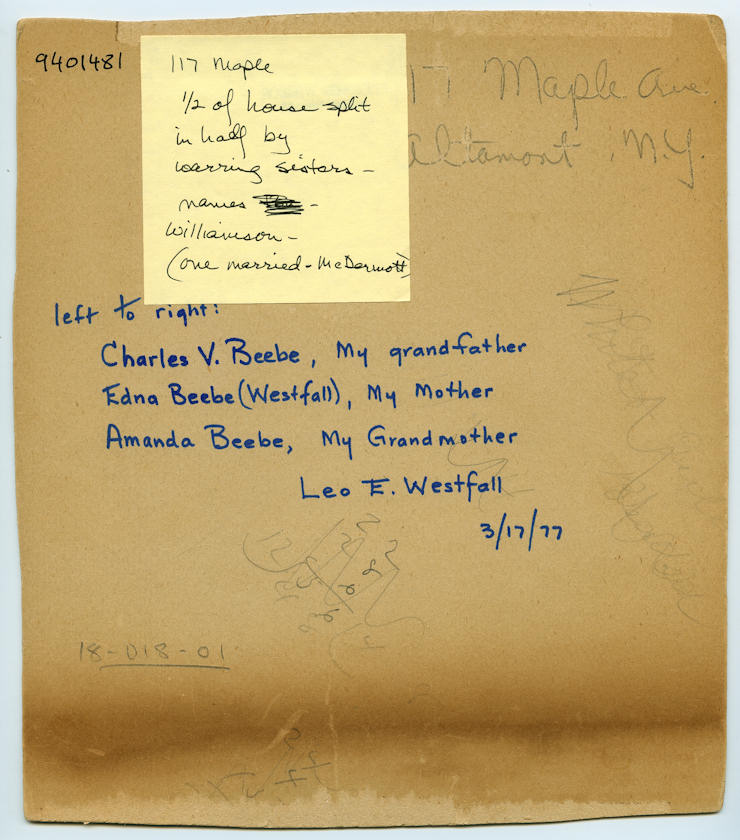 9401481
117 Maple
1/2 of house split
in half by
warring sisters -
names -
Williamson -
(one married - McDermott)
17 Maple Ave.
Altamont, N.Y.
left to right:
Charles V. Beebe, My grandfather
Edna Beebe (Westfall), My Mother
Amanda Beebe, My Grandmother
Leo E. Westfall
3/17/77
18-D18-01